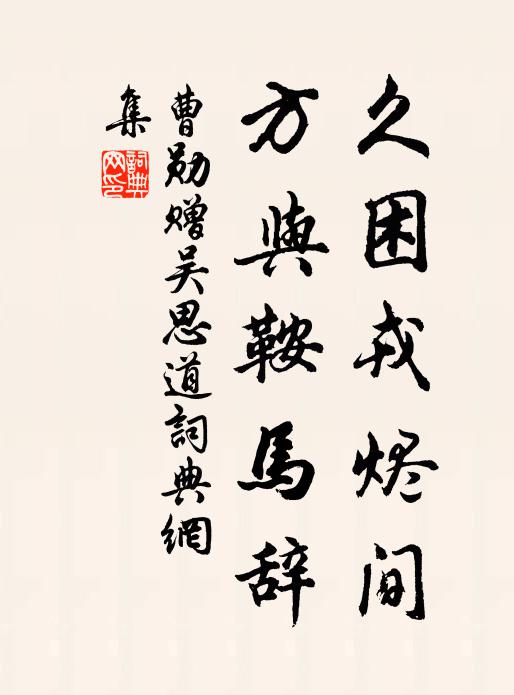 久困戎烬间
方与鞍马辞
曹勋赠吴思道詞典網
集
詞典
网印